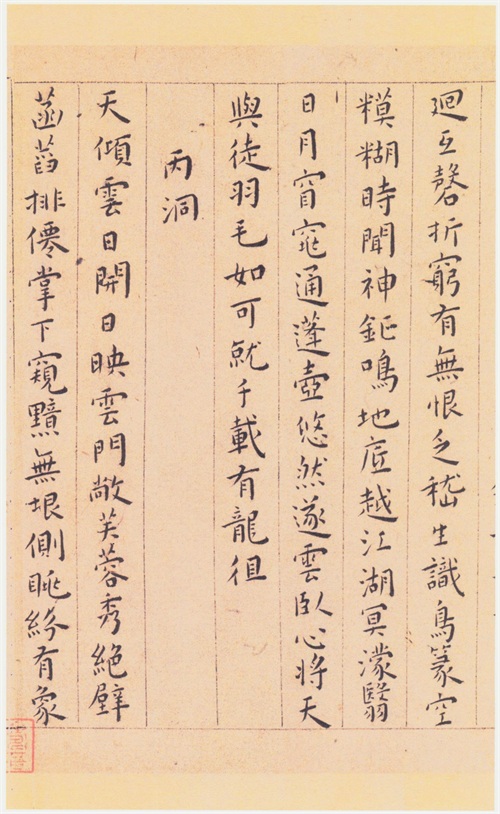 迴互磬折窮有無恨乏嵇生識鳥篆空
糢糊時聞神鉅鳴地底越江湖冥濛翳
日月窅窕通蓬壺悠然遂雲臥心將天
與徒羽毛如可就千載有龍徂
丙洞
天傾雲日開日映雲門敞芙蓉秀絶壁
菡萏排僊掌下窺黯無垠側眺紛有象